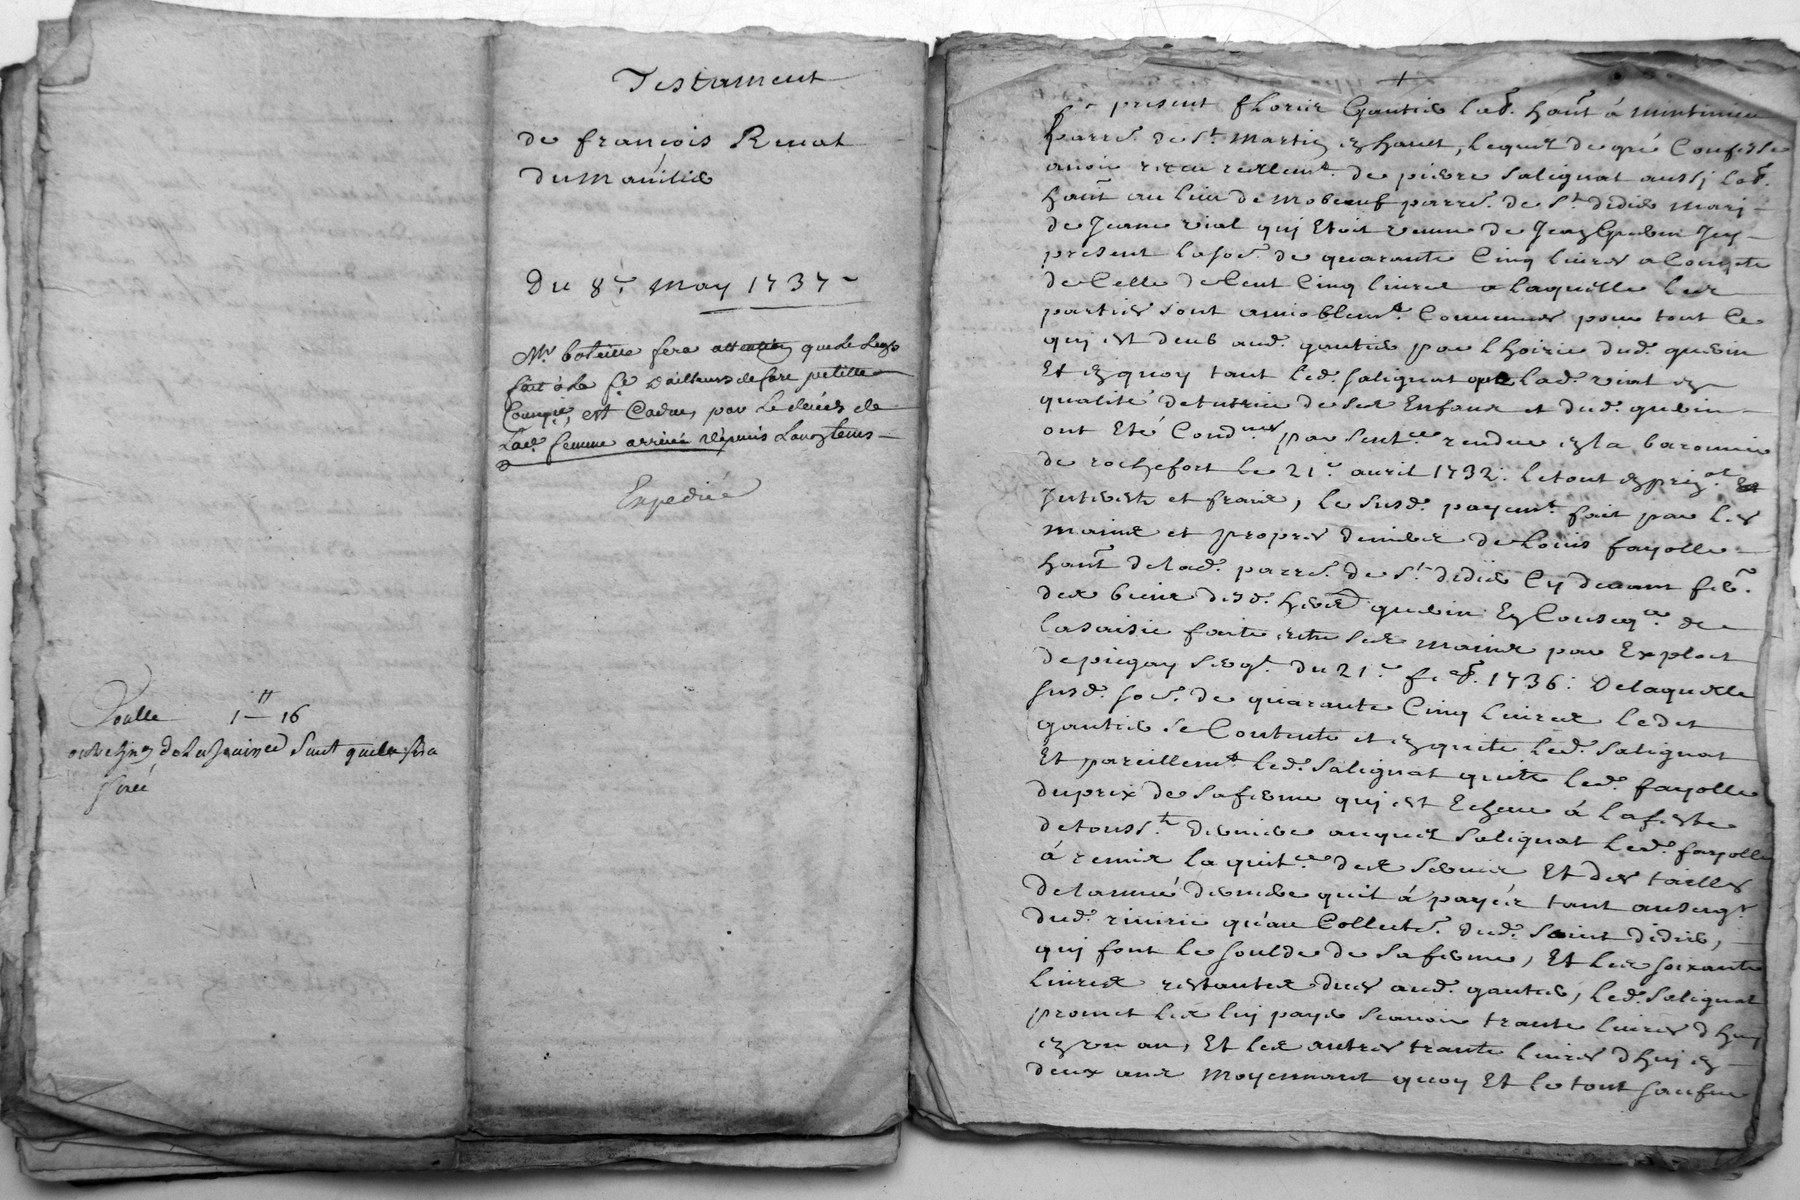 Testament
de françois Renat
du Manilie
Du 8e. May 1737
Mr boteille fera attention que le legs
fait à la fe. d'ailleurs de fare petitte
Compie, est Caduc, par le decéds de
lad. femme arrivée depuis Longtems
Expediée
Doulle 1 tt 16
de la quince Sauf quil sera
+
present florie Gautié lad. hant à
parre. de St. Martin en haut, lequel de gré Confesse
avoir receu reellemt. de pierre Salignat aussj lab.
hant au lieu de Mobeuf parre. de St didié marj
de Jeanne vial quj Etoit veuve de Jean Guérin Jcy
present la soe. de quarante Cinq livres a Compte
de Celle de Cent Cinq livres a laquelle les
parties sont amiablemt. Convenues pour tout Ce
quj est deub aud. gautié par lhoirie dud. guérin
Et en quoy tant led. Salignat que lad. vial en
qualité de tutrice de ses Enfans et dud. guérin
ont Eté Condnés par sentce. rendue en la baronnie
de rochefort le 21e avril 1732: le tout en pripal
Jnterets et fraix, le susd. payemt. fait par les
mains et propres deniers de Loüis fayolle
hant. de lad. parre. de St didié Cy devant fer.
des biens desd. hers guérin En Conseqce. de
la saisie faite entre ses mains par Exploit
de piegay sergt. du 21e fer. 1736: De laquelle
susd. soe. de quarante Cinq livres ledit
gautié se Contente et en quitte led. Salignat
Et pareillemt. led. Salignat quitte led. fayolle
du prix de sa ferme quj est Echeue à la feste
de toussts derniere auquel Salignat led. fayolle
à remis la quitce des servis Et des tailles
de l'année derniere quil à payér tant au sergt.
dud. riverie qu'au Collecte. dud. Saint didié,
quj font le soulde de sa ferme, Et les soixante
livres restantes dües aud. gautié, led. Salignat
promet les luy payé scavoir trante livres d'huy
en un an, Et les autres trante livres d'huj en
deux ans Moyennant quoy Et le tout